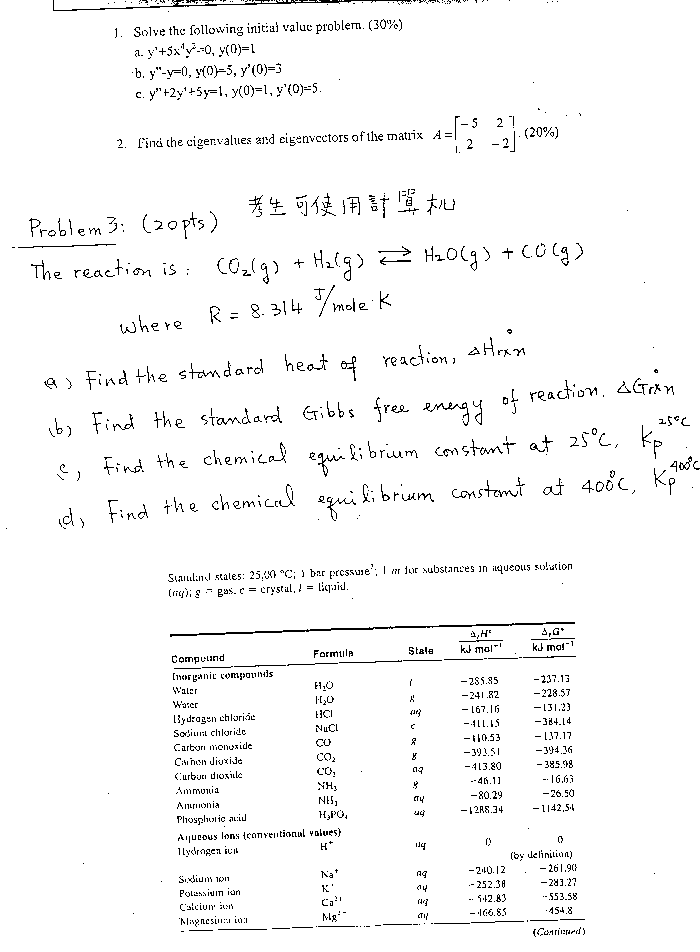 1. Solve the following initial value problem. (30%)
a. y'+5x⁴y²=0, y(0)=1
b. y"-y=0, y(0)=5, y'(0)=3
c. y"+2y'+5y=1, y(0)=1, y'(0)=5.
2. Find the eigenvalues and eigenvectors of the matrix A = [-5 2; 2 -2]. (20%)
考生可使用計算机
Problem 3: (20pts)
The reaction is: CO₂(g) + H₂(g) ⇄ H₂O(g) + CO(g)
where R = 8.314 J/mole·K
a) Find the standard heat of reaction, ΔH°rxn
(b) Find the standard Gibbs free energy of reaction. ΔG°rxn
c, Find the chemical equilibrium constant at 25°C, Kp 25°C
(d) Find the chemical equilibrium constant at 400°C, Kp 400°C.
Standard states: 25.00 °C; 1 bar pressure²; 1 m for substances in aqueous solution
(aq); g = gas, c = crystal, l = liquid.
ΔfH° ΔfG°
Compound Formula State kJ mol⁻¹ kJ mol⁻¹
Inorganic compounds
Water H₂O l -285.85 -237.13
Water H₂O g -241.82 -228.57
Hydrogen chloride HCl aq -167.16 -131.23
Sodium chloride NaCl c -411.15 -384.14
Carbon monoxide CO g -110.53 -137.17
Carbon dioxide CO₂ g -393.51 -394.36
Carbon dioxide CO₂ aq -413.80 -385.98
Ammonia NH₃ g -46.11 -16.63
Ammonia NH₃ aq -80.29 -26.50
Phosphoric acid H₃PO₄ aq -1288.34 -1142.54
Aqueous Ions (conventional values)
Hydrogen ion H⁺ aq 0 0
(by definition)
Sodium ion Na⁺ aq -240.12 -261.90
Potassium ion K⁺ aq -252.38 -283.27
Calcium ion Ca²⁺ aq -542.83 -553.58
Magnesium ion Mg²⁺ aq -466.85 -454.8
(Continued)